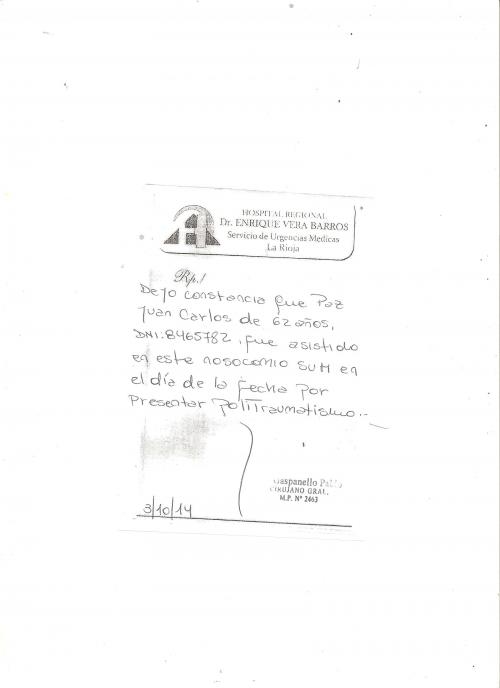 HOSPITAL REGIONAL
Dr. ENRIQUE VERA BARROS
Servicio de Urgencias Medicas
La Rioja
Rp./
Dejo constancia que Paz
Juan Carlos de 62 años,
DNI: 8465782, fue asistido
en este nosocomio SUM en
el día de la fecha por
Presentar politraumatismo.-
Gaspanello
CIRUJANO GRAL.
M.P. Nº 2463
3/10/14